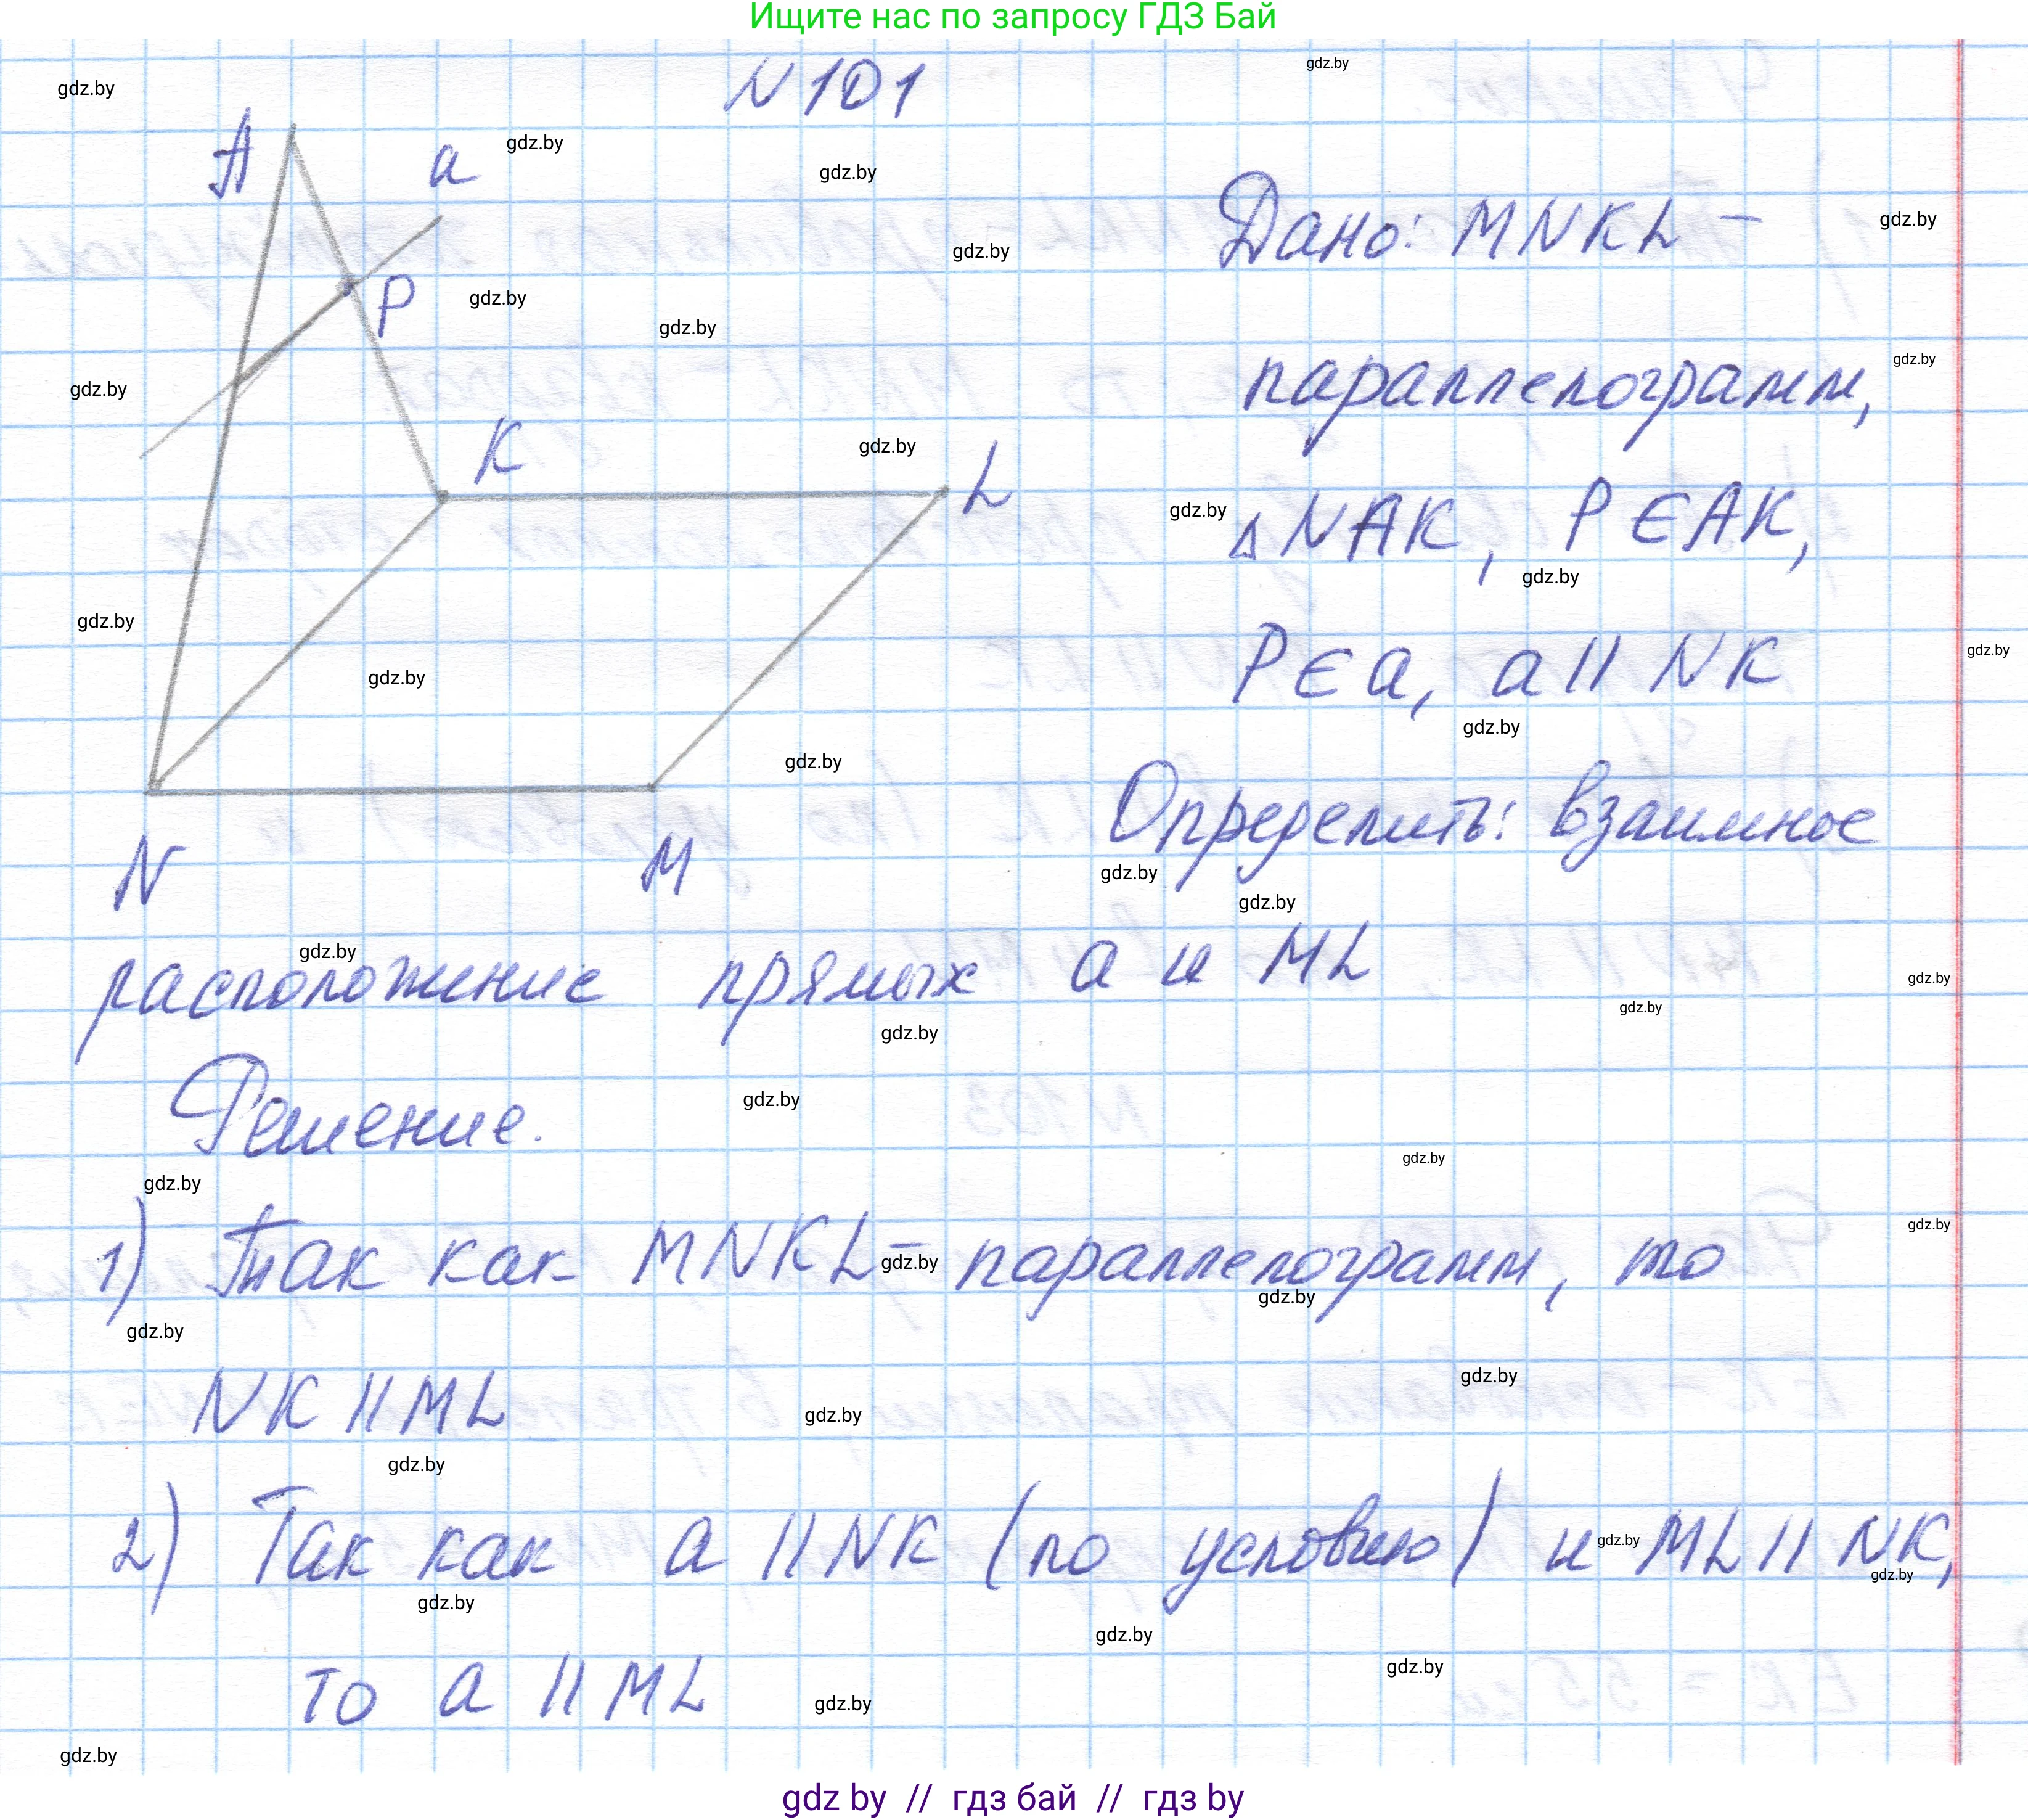 Ищите нас по запросу ГДЗ Бай
N 101
A
a
P
K
L
N
M
Дано: MNKL –
параллелограмм,
△NAK, P∈AK,
P∈a, a || NK
Определить: взаимное
расположение прямых a и ML
Решение.
1) Так как MNKL – параллелограмм, то
NK || ML
2) Так как a || NK (по условию) и ML || NK,
то a || ML
gdz by // гдз бай // гдз by